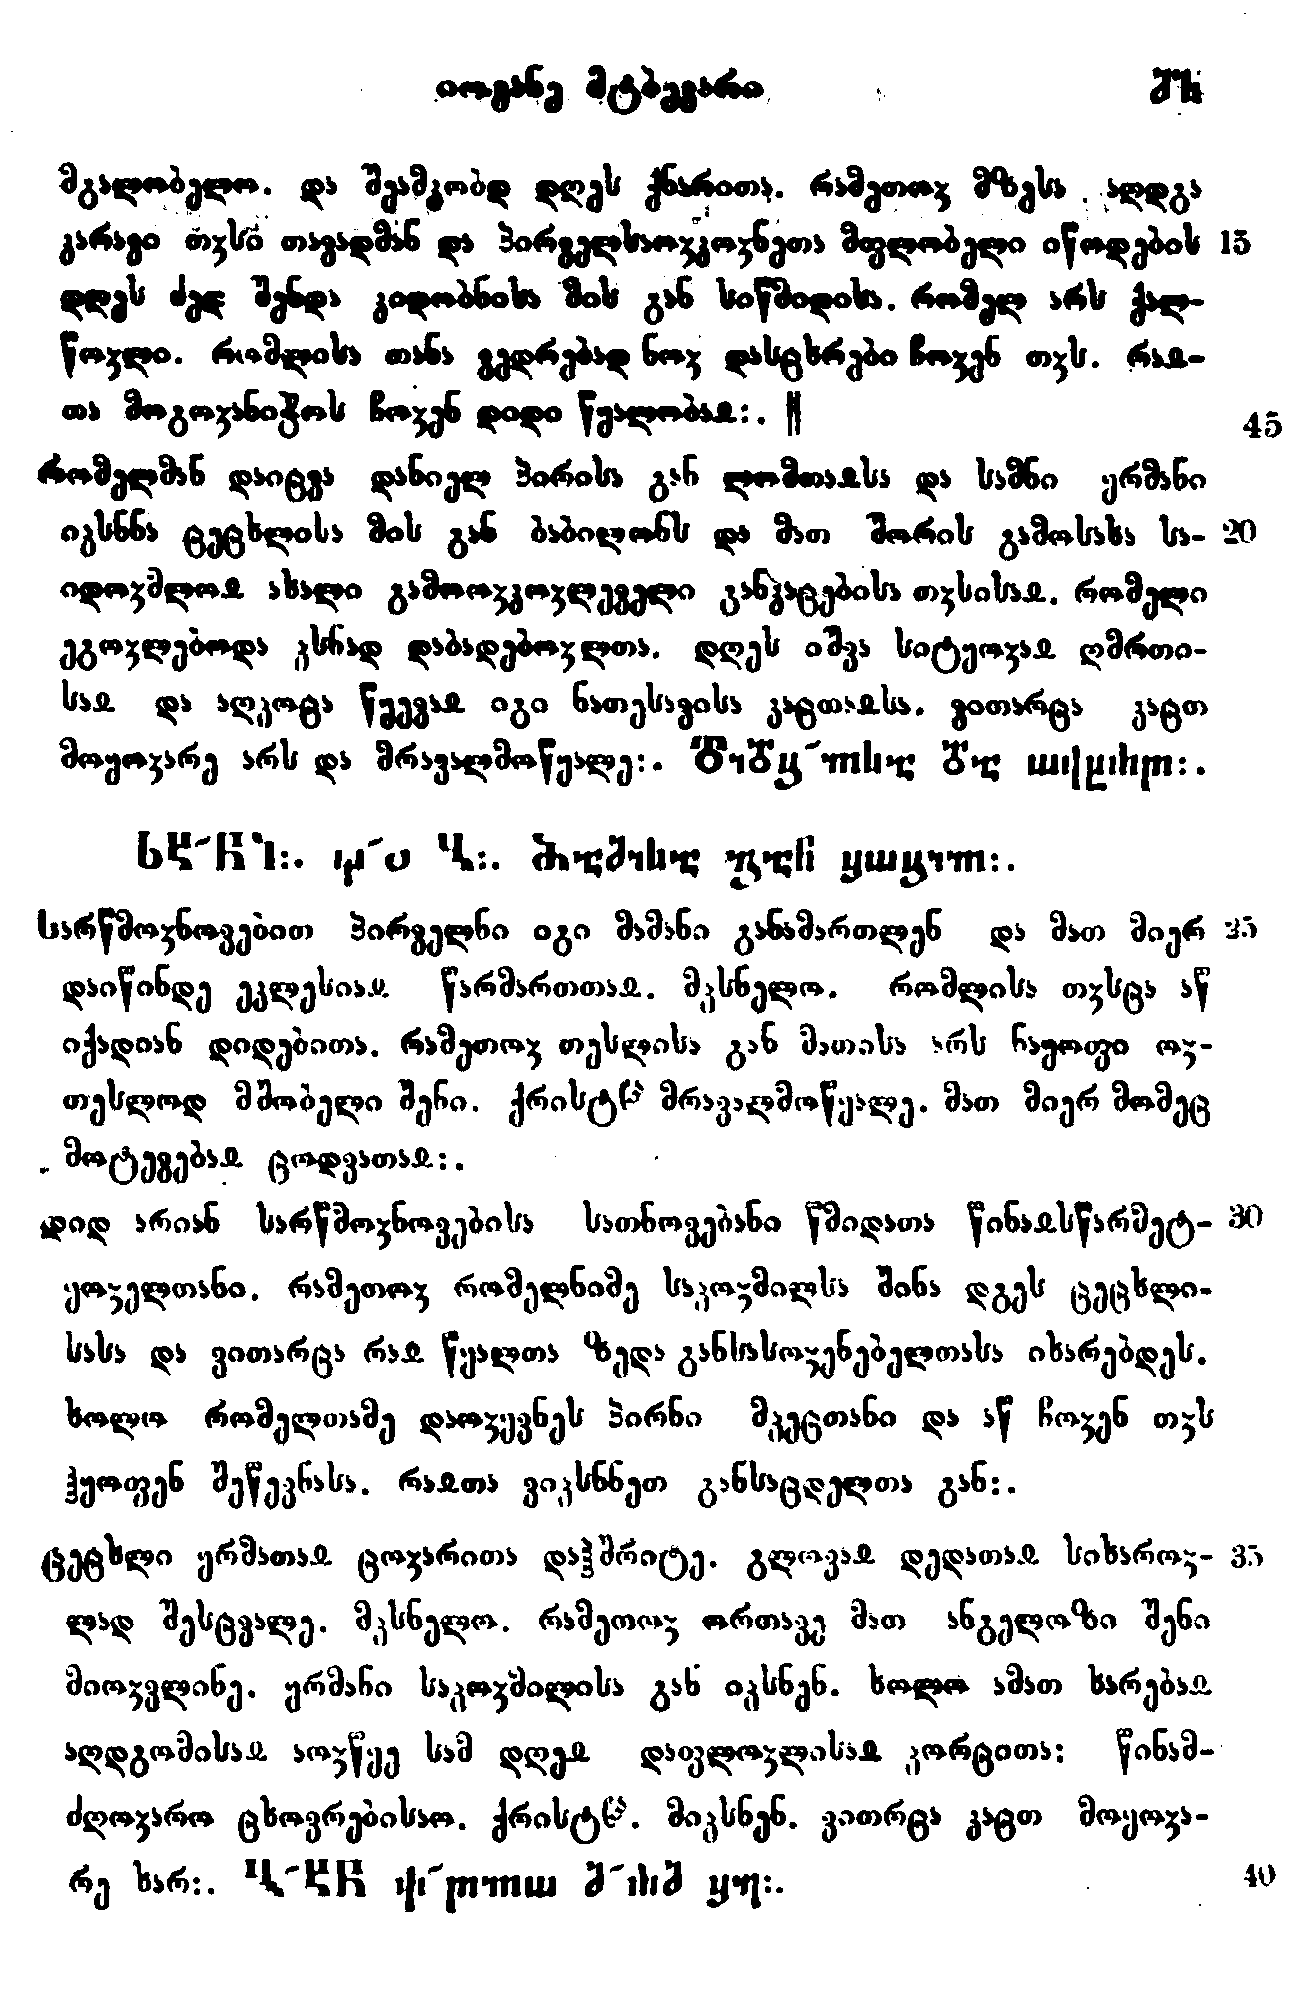 იოვანე მტბევარი
მგალობელო. და შეამკობდ დღეს ქნარითა. რამეთოჳ მზესა აღდგა
კარავი თჳსი თავადმან და პირველსაოჳკოჳნეთა მფლობელი იწოდების 15
დღეს ძედ შენდა კიდობნისა მის გან სიწმიდისა. რომელ არს ქალ-
წოჳლი. რომლისა თანა ვედრებად ნოჳ დასცხრები ჩოჳენ თჳს. რაჲ-
თა მოგოჳანიჭოს ჩოჳენ დიდი წყალობაჲ:. ||
45
რომელმან დაიცვა დანიელ პირისა გან ლომთაჲსა და სამნი ყრმანი
იჴსნნა ცეცხლისა მის გან ბაბილონს და მათ შორის გამოსახა სა- 20
იდოჳმლოჲ ახალი გამოოჳკოჳლეველი განკაცებისა თჳსისაჲ. რომელი
ეგოჳლებოდა ჴსნად დაბადებოჳლთა. დღეს იშვა სიტყოჳაჲ ღმრთი-
საჲ და აღჴოცა წყევაჲ იგი ნათესავისა კაცთაჲსა. ვითარცა კაცთ
მოყოჳარე არს და მრავალმოწყალე:.
სარწმოჳნოვებით პირველნი იგი მამანი განამართლენ და მათ მიერ 25
დაიწინდე ეკლესიაჲ წარმართთაჲ. მჴსნელო. რომლისა თჳსცა აწ
იქადიან დიდებითა. რამეთოჳ თესლისა გან მათისა არს ნაყოფი ოჳ-
თესლოდ მშობელი შენი. ქრისტე მრავალმოწყალე. მათ მიერ მომეც
მოტევებაჲ ცოდვათაჲ:.
დიდ არიან სარწმოჳნოვებისა სათნოვებანი წმიდათა წინაჲსწარმეტ- 30
ყოჳელთანი. რამეთოჳ რომელნიმე საჴოჳმილსა შინა დგეს ცეცხლი-
სასა და ვითარცა რაჲ წყალთა ზედა განსასოჳენებელთასა იხარებდეს.
ხოლო რომელთამე დაოჳყვნეს პირნი მჴეცთანი და აწ ჩოჳენ თჳს
ჰყოფენ შეწევნასა. რაჲთა ვიჴსნნეთ განსაცდელთა გან:.
ცეცხლი ყრმათაჲ ცოჳარითა დაჰშრიტე. გლოვაჲ დედათაჲ სიხაროჳ- 35
ლად შესცვალე. მჴსნელო. რამეთოჳ ორთავე მათ ანგელოზი შენი
მიოჳვლინე. ყრმანი საჴოჳმილისა გან იჴსნენ. ხოლო ამათ ხარებაჲ
აღდგომისაჲ აოჳწყე სამ დღეჲ დაფლოჳლისაჲ ჴორცითა: წინამ-
ძღოჳარო ცხოვრებისაო. ქრისტე. მიჴსნენ. ვითრცა კაცთ მოყოჳა-
რე ხარ:. 40